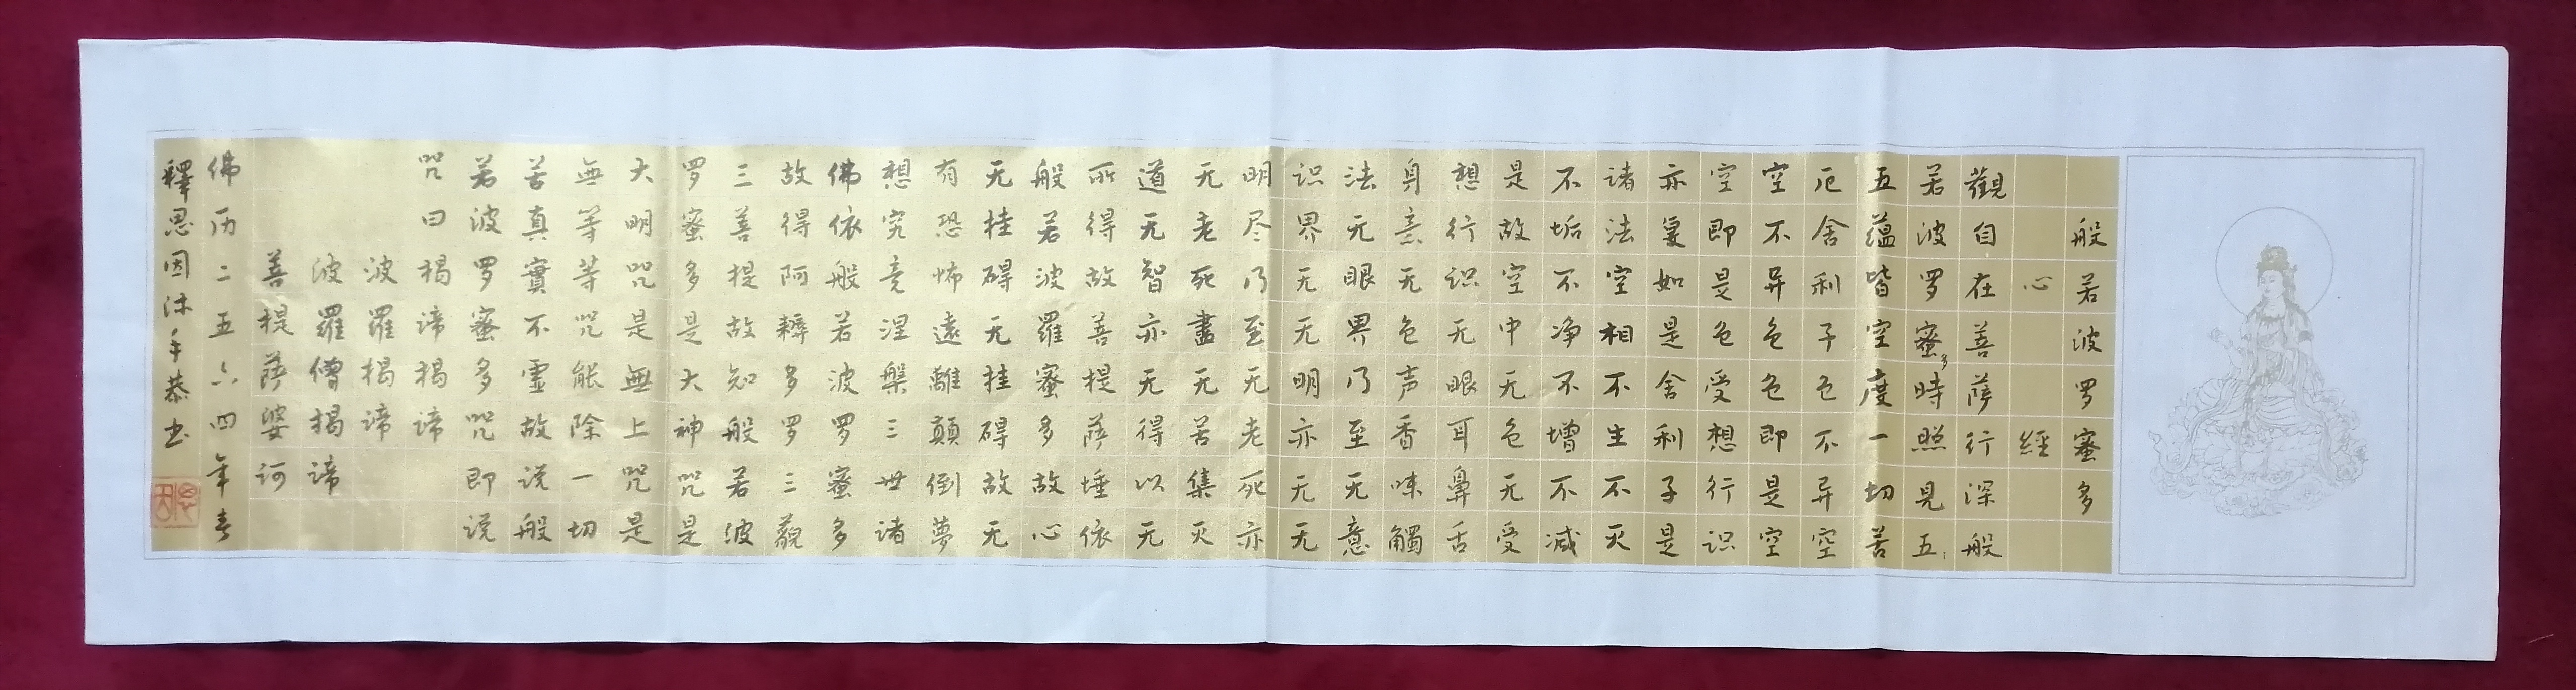 般若波罗蜜多
心經
觀自在菩萨行深般
若波罗蜜多時照見五
五蕴皆空度一切苦
厄舍利子色不异空
空不异色色即是空
空即是色受想行识
亦复如是舍利子是
诸法空相不生不灭
不垢不净不增不减
是故空中无色无受
想行识无眼耳鼻舌
身意无色声香味觸
法无眼界乃至无意
识界无无明亦无无
明尽乃至无老死亦
无老死盡无苦集灭
道无智亦无得以无
所得故菩提萨埵依
般若波羅蜜多故心
无挂碍无挂碍故无
有恐怖遠離顛倒夢
想究竟涅槃三世诸
佛依般若波罗蜜多
故得阿耨多罗三藐
三菩提故知般若波
罗蜜多是大神咒是
大明咒是無上咒是
無等等咒能除一切
苦真實不虚故说般
若波罗蜜多咒即说
咒曰揭谛揭谛
波羅揭谛
波羅僧揭谛
菩提萨婆诃
佛历二五六四年春
釋思因沐手恭书
思因